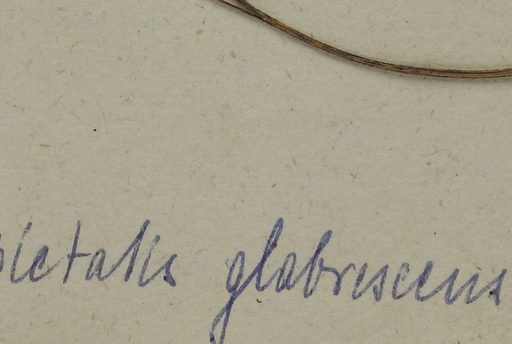 pictalis glabrescens